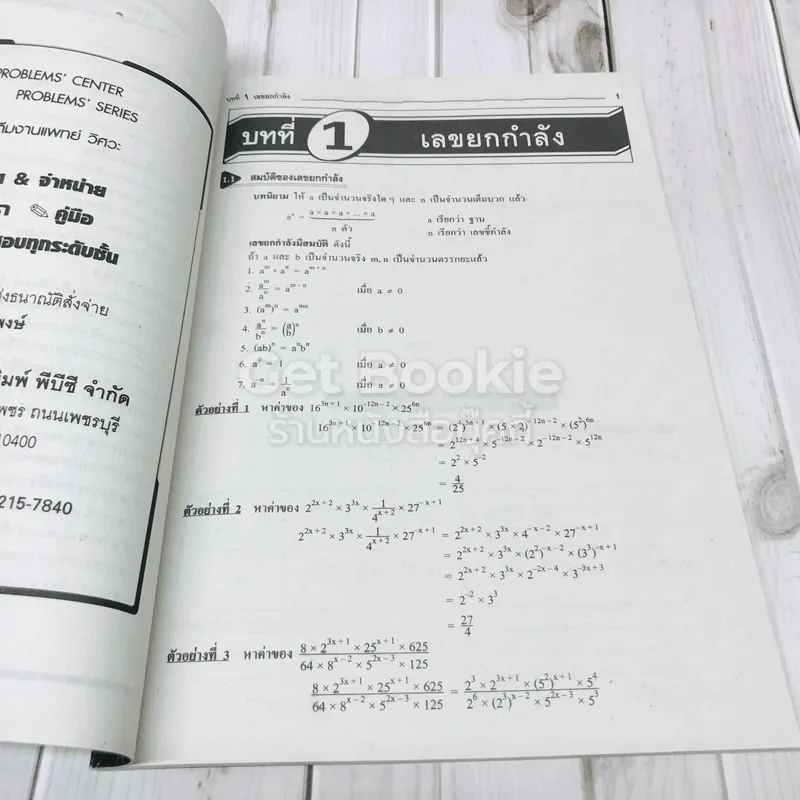 PROBLEMS' CENTER
PROBLEMS' SERIES
ทีมงานแพทย์ วิศวะ
& จำหน่าย
คู่มือ
สอบทุกระดับชั้น
ธนาณัติสั่งจ่าย
พงษ์
พิมพ์ พีบีซี จำกัด
เพชร ถนนเพชรบุรี
10400
215-7840
บทที่ 1 เลขยกกำลัง 1
บทที่ 1 เลขยกกำลัง
1.1 สมบัติของเลขยกกำลัง
บทนิยาม ให้ a เป็นจำนวนจริงใด ๆ และ n เป็นจำนวนเต็มบวก แล้ว
aⁿ = a × a × a × ... × a a เรียกว่า ฐาน
n ตัว n เรียกว่า เลขชี้กำลัง
เลขยกกำลังมีสมบัติ ดังนี้
ถ้า a และ b เป็นจำนวนจริง m, n เป็นจำนวนตรรกยะแล้ว
1. a^m × a^n = a^(m + n)
2. a^m/a^n = a^(m – n) เมื่อ a ≠ 0
3. (a^m)^n = a^(mn)
4. a^n/b^n = (a/b)^n เมื่อ b ≠ 0
5. (ab)^n = a^n b^n
6. a^0 = 1 เมื่อ a ≠ 0
7. a^(–n) = 1/a^n เมื่อ a ≠ 0
Get Bookie
ร้านหนังสือบุ๊คกี้
ตัวอย่างที่ 1 หาค่าของ 16^(3n + 1) × 10^(–12n – 2) × 25^(6n)
16^(3n + 1) × 10^(–12n – 2) × 25^(6n) = (2^4)^(3n + 1) × (5 × 2)^(–12n – 2) × (5^2)^(6n)
= 2^(12n + 4) × 5^(–12n – 2) × 2^(–12n – 2) × 5^(12n)
= 2^2 × 5^(–2)
= 4/25
ตัวอย่างที่ 2 หาค่าของ 2^(2x + 2) × 3^(3x) × 1/4^(x + 2) × 27^(–x + 1)
2^(2x + 2) × 3^(3x) × 1/4^(x + 2) × 27^(–x + 1) = 2^(2x + 2) × 3^(3x) × 4^(–x – 2) × 27^(–x + 1)
= 2^(2x + 2) × 3^(3x) × (2^2)^(–x – 2) × (3^3)^(–x + 1)
= 2^(2x + 2) × 3^(3x) × 2^(–2x – 4) × 3^(–3x + 3)
= 2^(–2) × 3^3
= 27/4
ตัวอย่างที่ 3 หาค่าของ 8 × 2^(3x + 1) × 25^(x + 1) × 625
64 × 8^(x – 2) × 5^(2x – 3) × 125
8 × 2^(3x + 1) × 25^(x + 1) × 625 = 2^3 × 2^(3x + 1) × (5^2)^(x + 1) × 5^4
64 × 8^(x – 2) × 5^(2x – 3) × 125 2^6 × (2^3)^(x – 2) × 5^(2x – 3) × 5^3